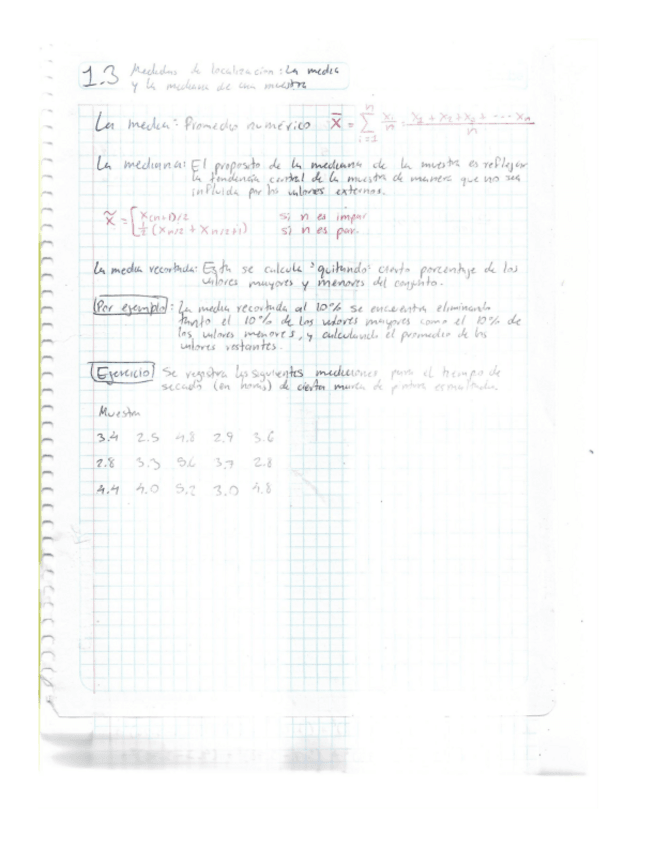 1.3 Medidas de localización: La media
y la mediana de una muestra
La media: Promedio numérico x̄ = Σ_{i=1}^{n} xi/n = (x1 + x2 + x3 + ... xn)/n
La mediana: El proposito de la mediana de la muestra es reflejar
la tendencia central de la muestra de manera que no sea
influida por los valores externos.
x̃ = [ x(n+1)/2 si n es impar
½ (xn/2 + xn/2+1) si n es par.
La media recortada: Esta se calcula "quitando" cierto porcentaje de los
valores mayores y menores del conjunto.
Por ejemplo: La media recortada al 10% se encuentra eliminando
tanto el 10% de los valores mayores como el 10% de
los valores menores, y calculando el promedio de los
valores restantes.
Ejercicio Se registra los siguientes mediciones para el tiempo de
secado (en horas) de cierta marca de pintura esmaltada.
Muestra
3.4 2.5 4.8 2.9 3.6
2.8 3.3 5.6 3.7 2.8
4.4 4.0 5.2 3.0 4.8